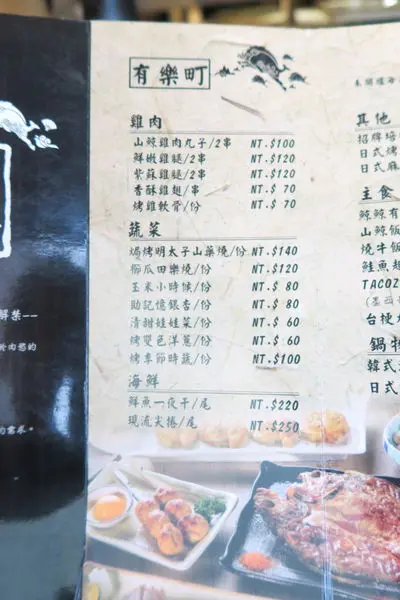 有樂町
雞肉
山鯨雞肉丸子/2串 NT.$100
鮮嫩雞腿/2串 NT.$120
紫蘇雞腿/2串 NT.$120
香酥雞翅/串 NT.$ 70
烤雞軟骨/份 NT.$ 70
蔬菜
焗烤明太子山藥燒/份 NT.$140
櫛瓜田樂燒/份 NT.$120
玉米小時候/份 NT.$ 80
助記憶銀杏/份 NT.$ 80
清甜娃娃菜/份 NT.$ 60
烤雙色洋蔥/份 NT.$ 60
烤季節時蔬/份 NT.$100
海鮮
鮮魚一夜干/尾 NT.$220
現流尖捲/尾 NT.$250
其他
招牌培
日式烤
日式麻
主食
鯨鯨有
山鯨飯
燒牛飯
鮭魚超
TACOZ
(墨西
台梗
鍋物
韓式
日式
於肉慾的
的需求。